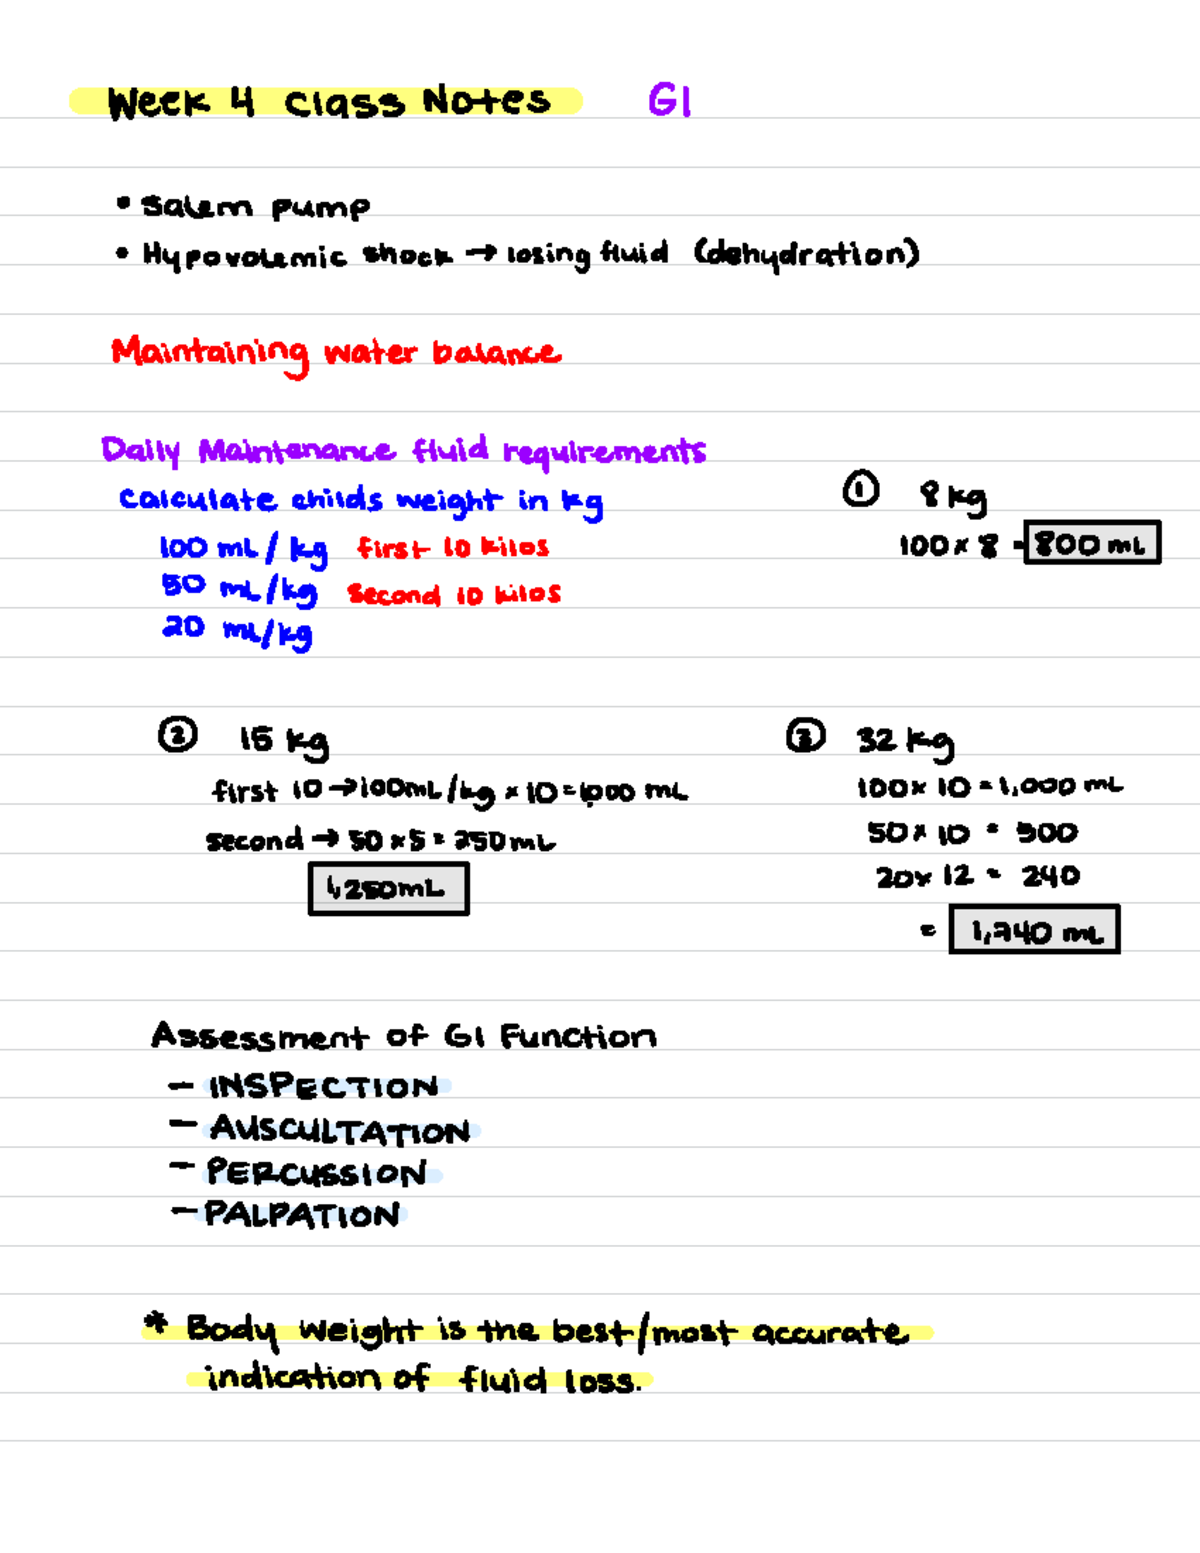 Week 4 Class Notes GI
• Salem pump
• Hypovolemic shock → losing fluid (dehydration)
Maintaining water balance
Daily Maintenance fluid requirements
Calculate childs weight in kg
100 mL / kg first 10 kilos
50 mL/kg second 10 kilos
20 mL/kg
① 8 kg
100 x 8 = 800 mL
② 15 kg
first 10 → 100mL/kg x 10 = 1,000 mL
second → 50 x 5 = 250 mL
1,250 mL
③ 32 kg
100 x 10 = 1,000 mL
50 x 10 = 500
20 x 12 = 240
= 1,740 mL
Assessment of GI Function
— INSPECTION
— AUSCULTATION
— PERCUSSION
— PALPATION
* Body weight is the best/most accurate
indication of fluid loss.